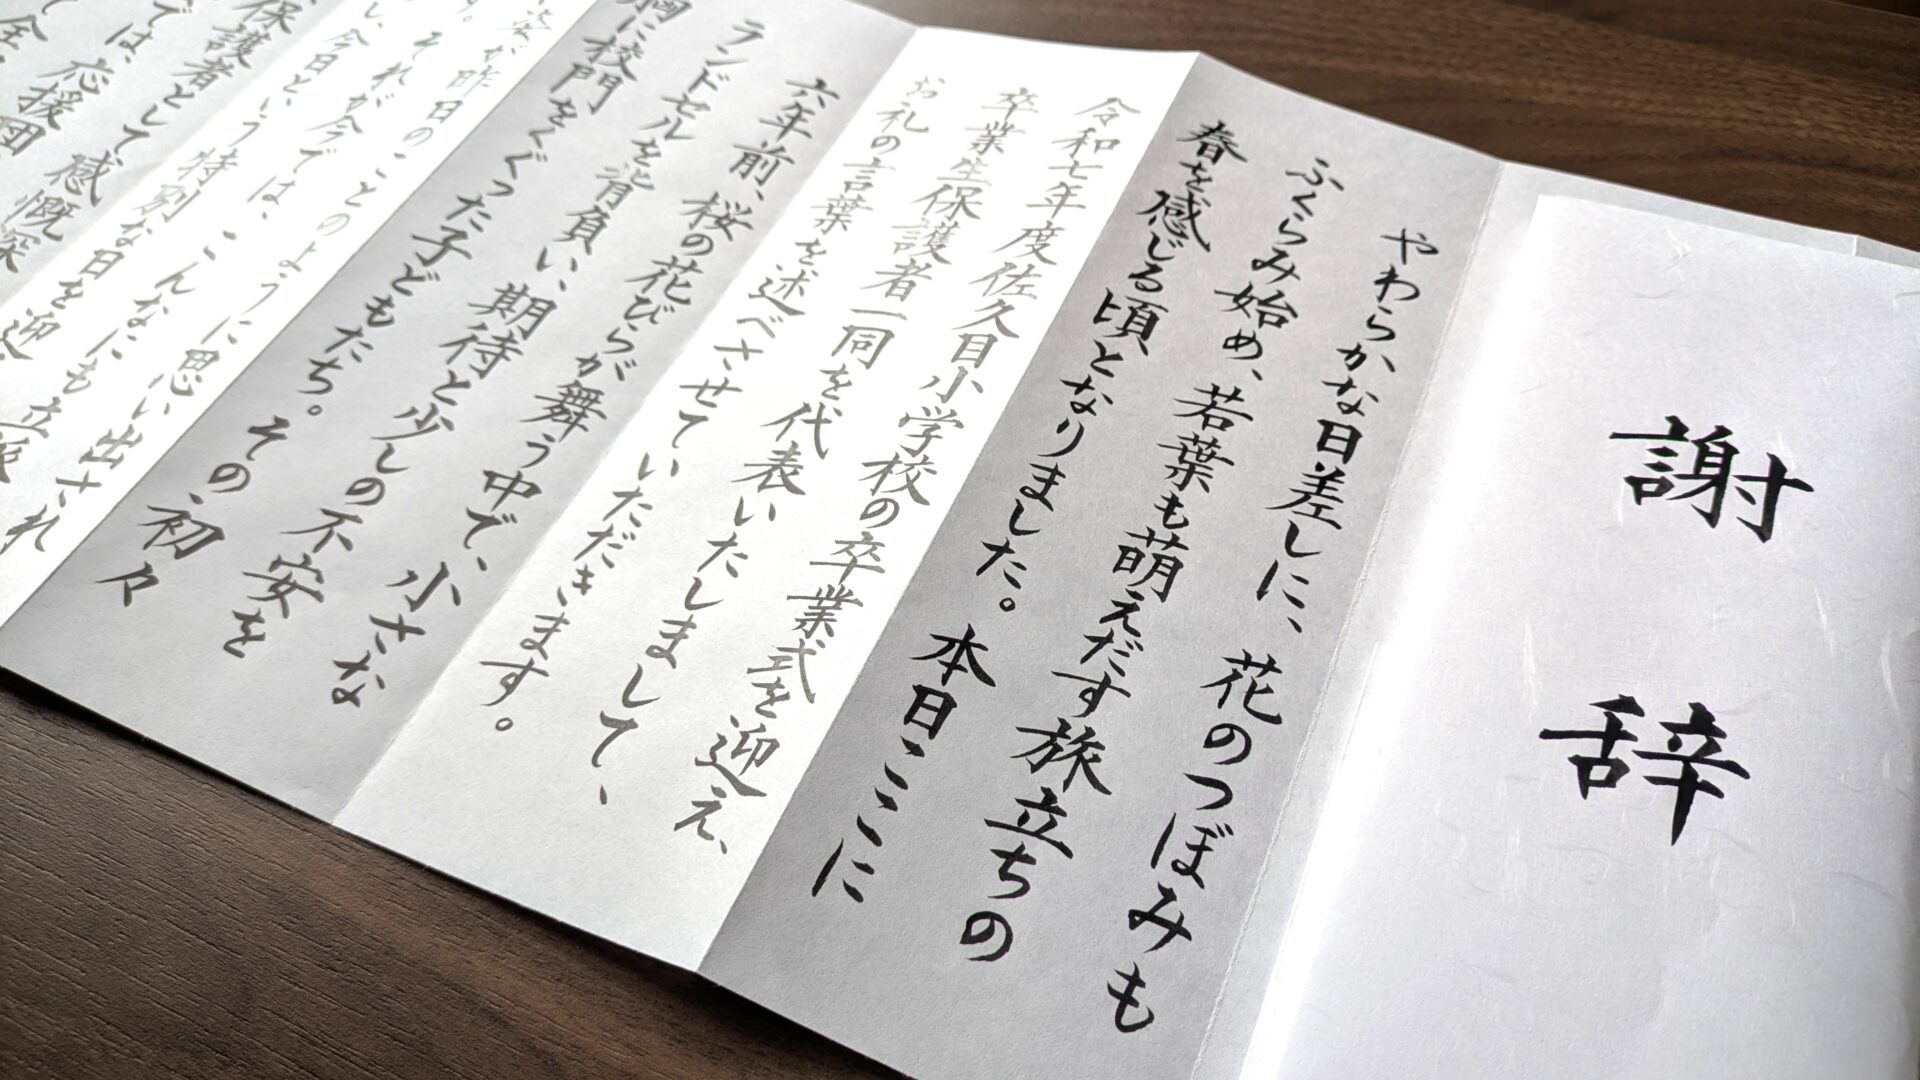 謝辞
やわらかな日差しに、花のつぼみも
ふくらみ始め、若葉も萌えだす旅立ちの
春を感じる頃となりました。本日ここに
令和七年度佐久目小学校の卒業式を迎え、
卒業生保護者一同を代表いたしまして、
お礼の言葉を述べさせていただきます。
六年前、桜の花びらが舞う中で、小さな
ランドセルを背負い、期待と少しの不安を
胸に校門をくぐった子どもたち。その初々
姿が昨日のことのように思い出され
す。それが今では、こんなにも立派
し、今日という特別な日を迎
保護者として感慨深
では、応援団
て全